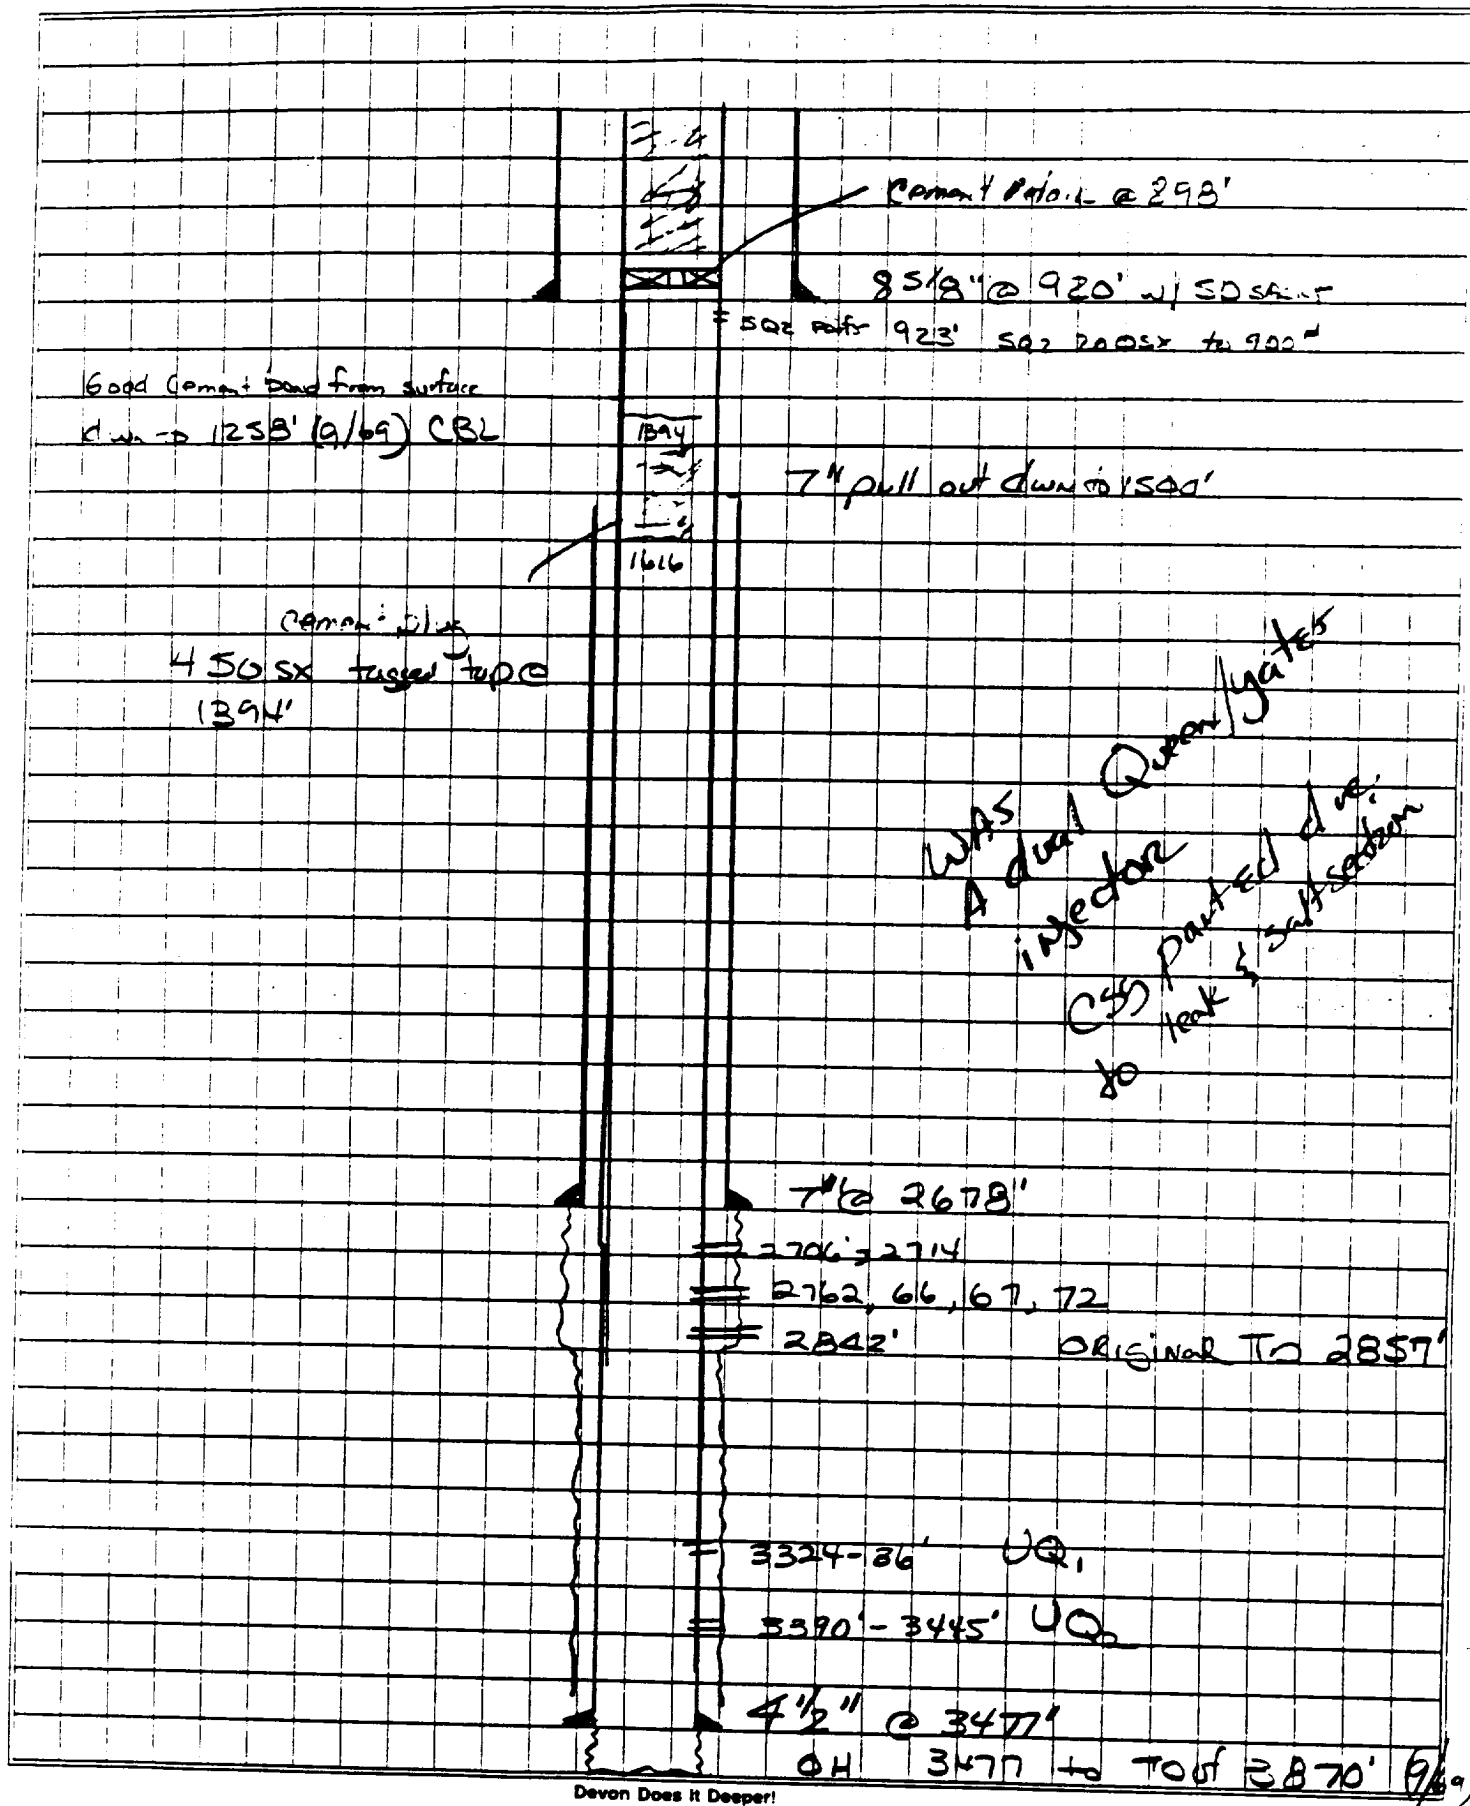 Cement @ 298'
8 5/8" @ 920' w/ 50
SQZ 923' SQZ 200sx to 900'
Good Cement bond from surface
dwn 1258' (9/69) CBL
1394
7" pull out dwn to 1500'
1616
Cement plug
450 sx tagged top @
1394'
WAS
A dual Queen/Yates
injector
CSG parted due
to leak & salt section
7" @ 2678"
2706', 2714
2762, 66, 67, 72
2842' ORIGINAL TD 2857'
3324-36' UQ1
3390'-3445' UQ2
4 1/2" @ 3477'
OH 3477 to TD of 3870' (9/69)
Devon Does It Deeper!